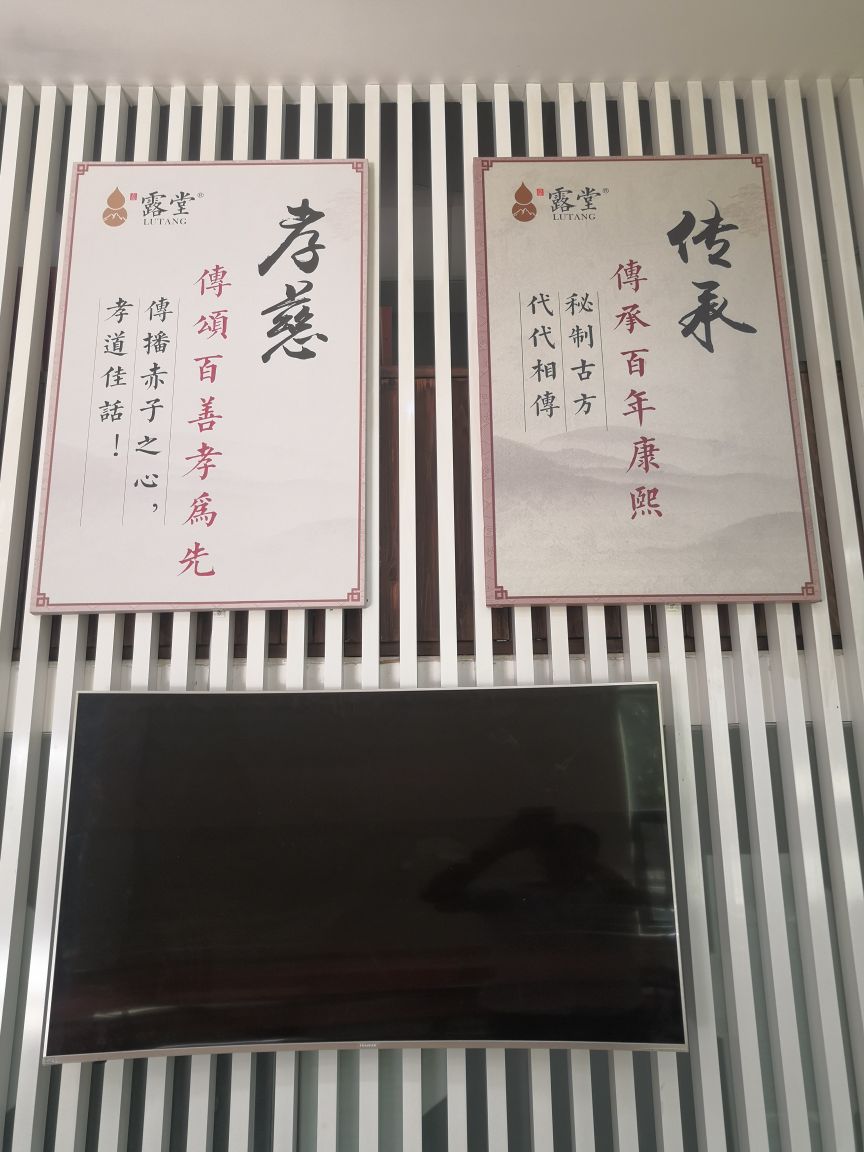 露堂®
LUTANG
孝慈
傳頌百善孝爲先
傳播赤子之心，
孝道佳話！
露堂®
LUTANG
传承
傳承百年康熙
秘制古方
代代相傳